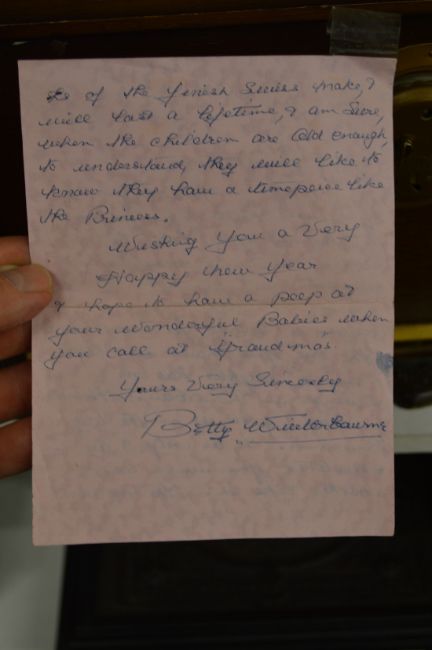 of the finest Swiss make, &
will last a lifetime, I am Sure,
when the children are old enough,
to understand, they will like to
know they have a timepiece like
the Princess.
Wishing You a Very
Happy New Year
& hope to have a peep at
your Wonderful Babies when
you call at Grandma's
Yours Very Sincerely
Betty Winterbourne